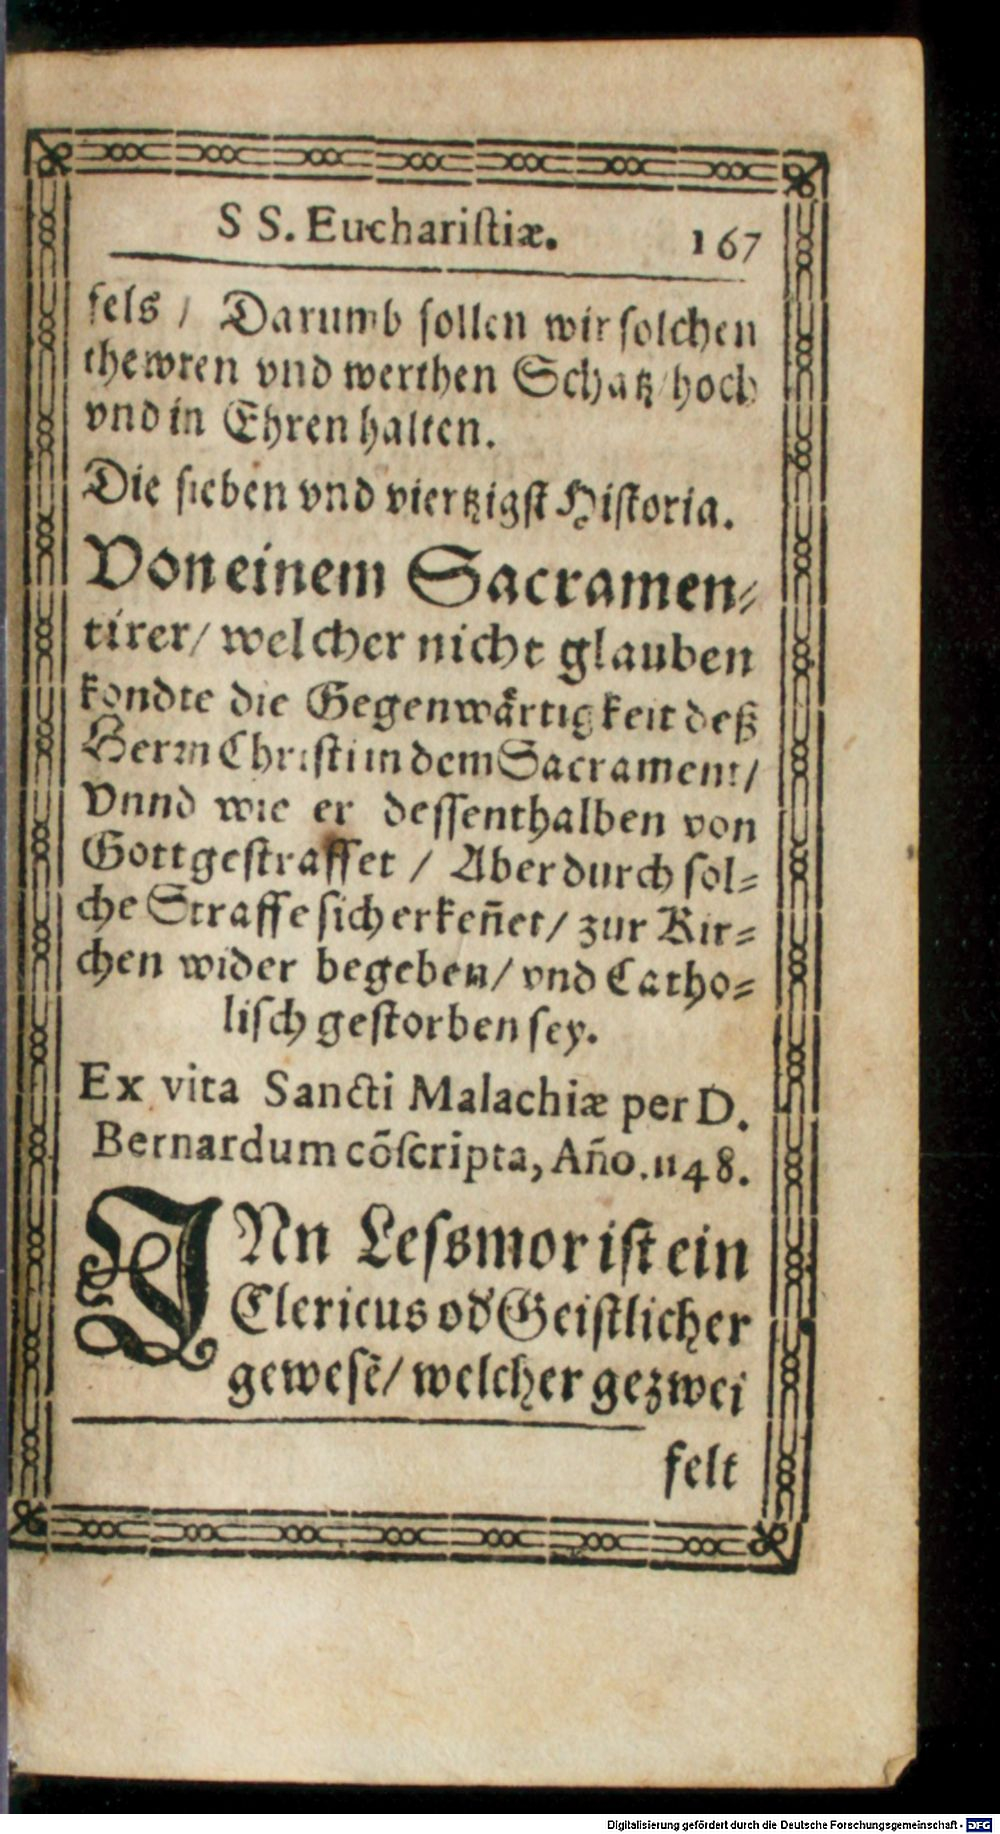 SS. Euchariſtiæ. 167
fels / Darumb ſollen wir ſolchen
thewren vnd werthen Schatz hoch
vnd in Ehren halten.
Die ſieben vnd viertzigſt Hiſtoria.
Von einem Sacramen⸗
tirer/ welcher nicht glauben
kondte die Gegenwaͤrtigkeit deß
Herrn Chriſti in dem Sacrament/
Vnnd wie er deſſenthalben von
Gott geſtraffet / Aber durch ſol⸗
che Straffe ſich erkeñet/ zur Kir⸗
chen wider begeben/ vnd Catho⸗
liſch geſtorben ſey.
Ex vita Sancti Malachiæ per D.
Bernardum cõſcripta, Año. 1148.
INn Leſsmor iſt ein
Clericus od' Geiſtlicher
geweſẽ/ welcher gezwei
felt
Digitalisierung gefördert durch die Deutsche Forschungsgemeinschaft - DFG